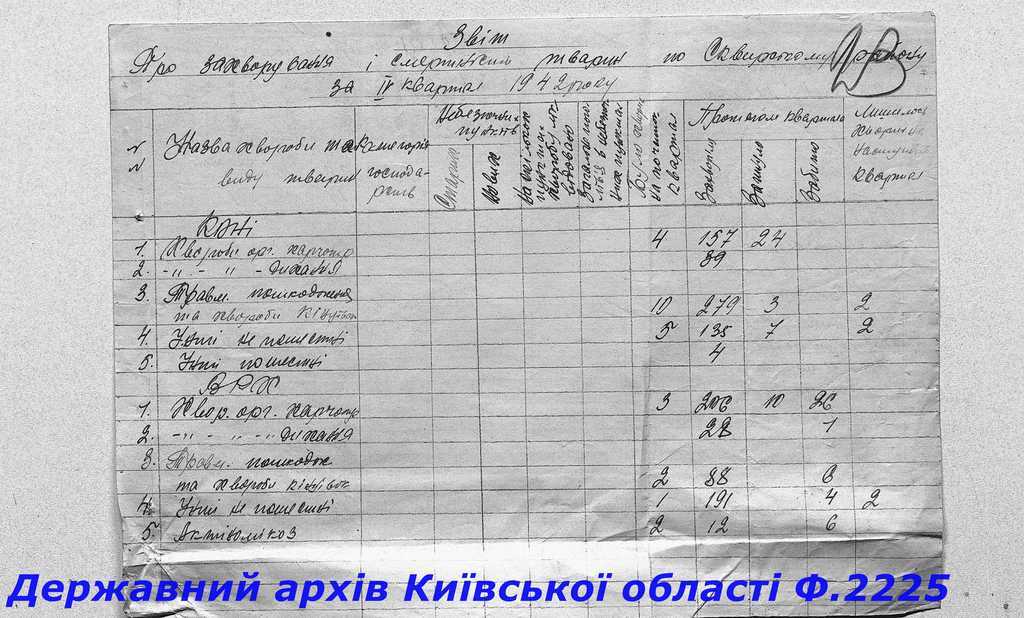 Звіт
Про захворування і смертність тварин по Сквирському району
за IV квартал 1942 року
№№
Назва хвороби та виду тварин
Категорія господарств
Небезпечн. пунктів
Старих
Нових
Було хворих на початок квартал
Протягом квартала
Захворіло
Загинуло
Забито
Лишилось хворих на наступний квартал
Коні
1. Хвороби орг. харчотр 4 157 24
2. -„- -„- дихання 89
3. Травм. пошкодження
та хвороби кінцівок 10 279 3 2
4. Інші не пошестні 5 135 7 2
5. Інші пошестні 4
ВРХ
1. Хвор. орг. харчотр 3 206 10 26
2. -„- -„- дихання 28 1
3. Травм. пошкодж
та хвороби кінцівок 2 88 6
4. Інші не пошестні 1 191 4 2
5. Актіномікоз 2 12 6
Державний архів Київської області Ф.2225